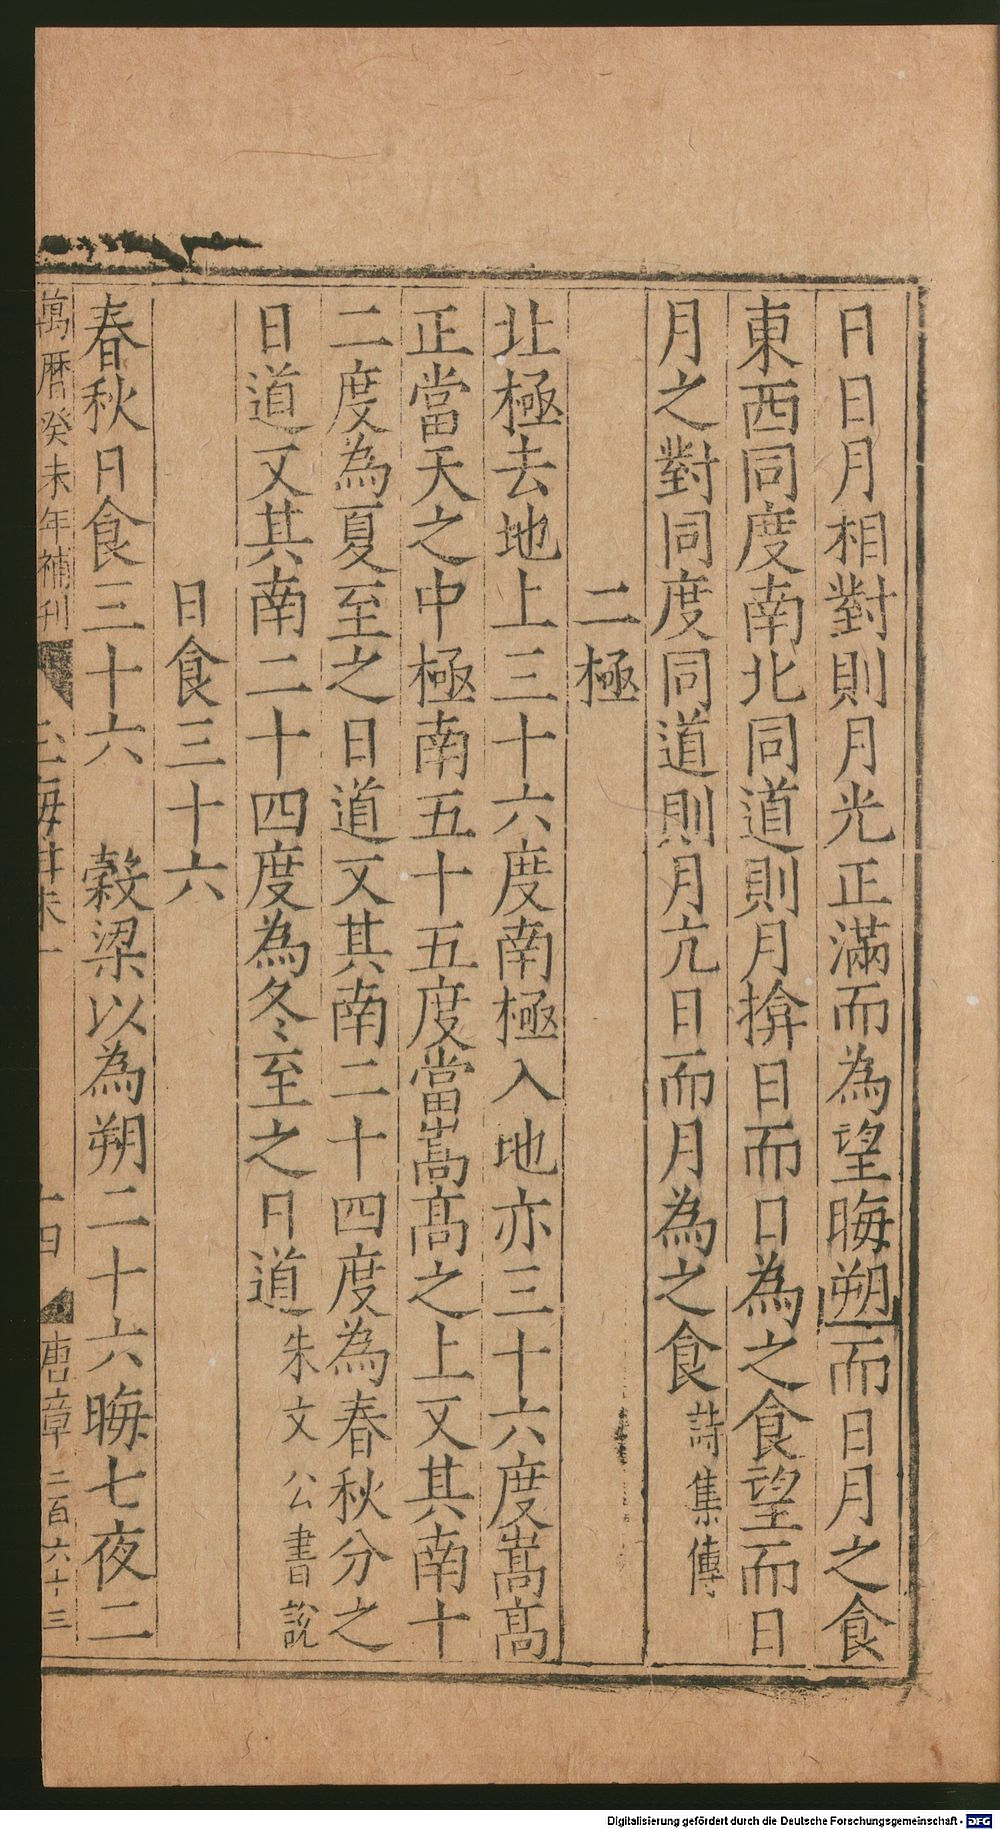 日日月相對則月光正滿而為望晦朔而日月之食
東西同度南北同道則月揜日而口為之食望而日
月之對同度同道則月亢日而月為之食詩集傳
二極
北極去地上三十六度南極入地亦三十六度嵩高
正當天之中極南五十五度當嵩高之上又其南十
二度為夏至之日道又其南二十四度為春秋分之
日道又其南二十四度為冬至之日道朱文公書説
日食三十六
春秋日食三十六 穀梁以為朔二十六晦七夜二
萬曆癸未年補刊 十四 曹章 二百六十三
Digitalisierung gefördert durch die Deutsche Forschungsgemeinschaft - DFG